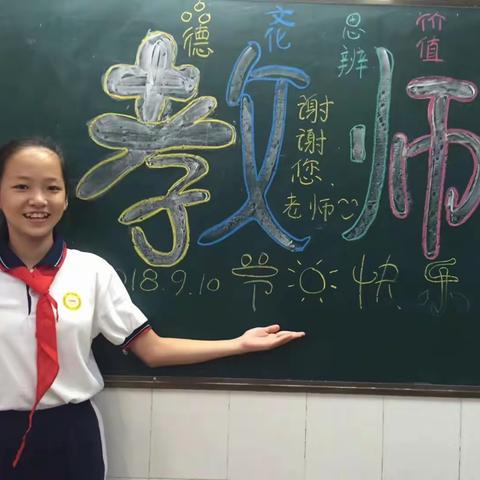 德 文化 思辨 价值
教师
谢谢
您
老师
2018.9.10 节日快乐